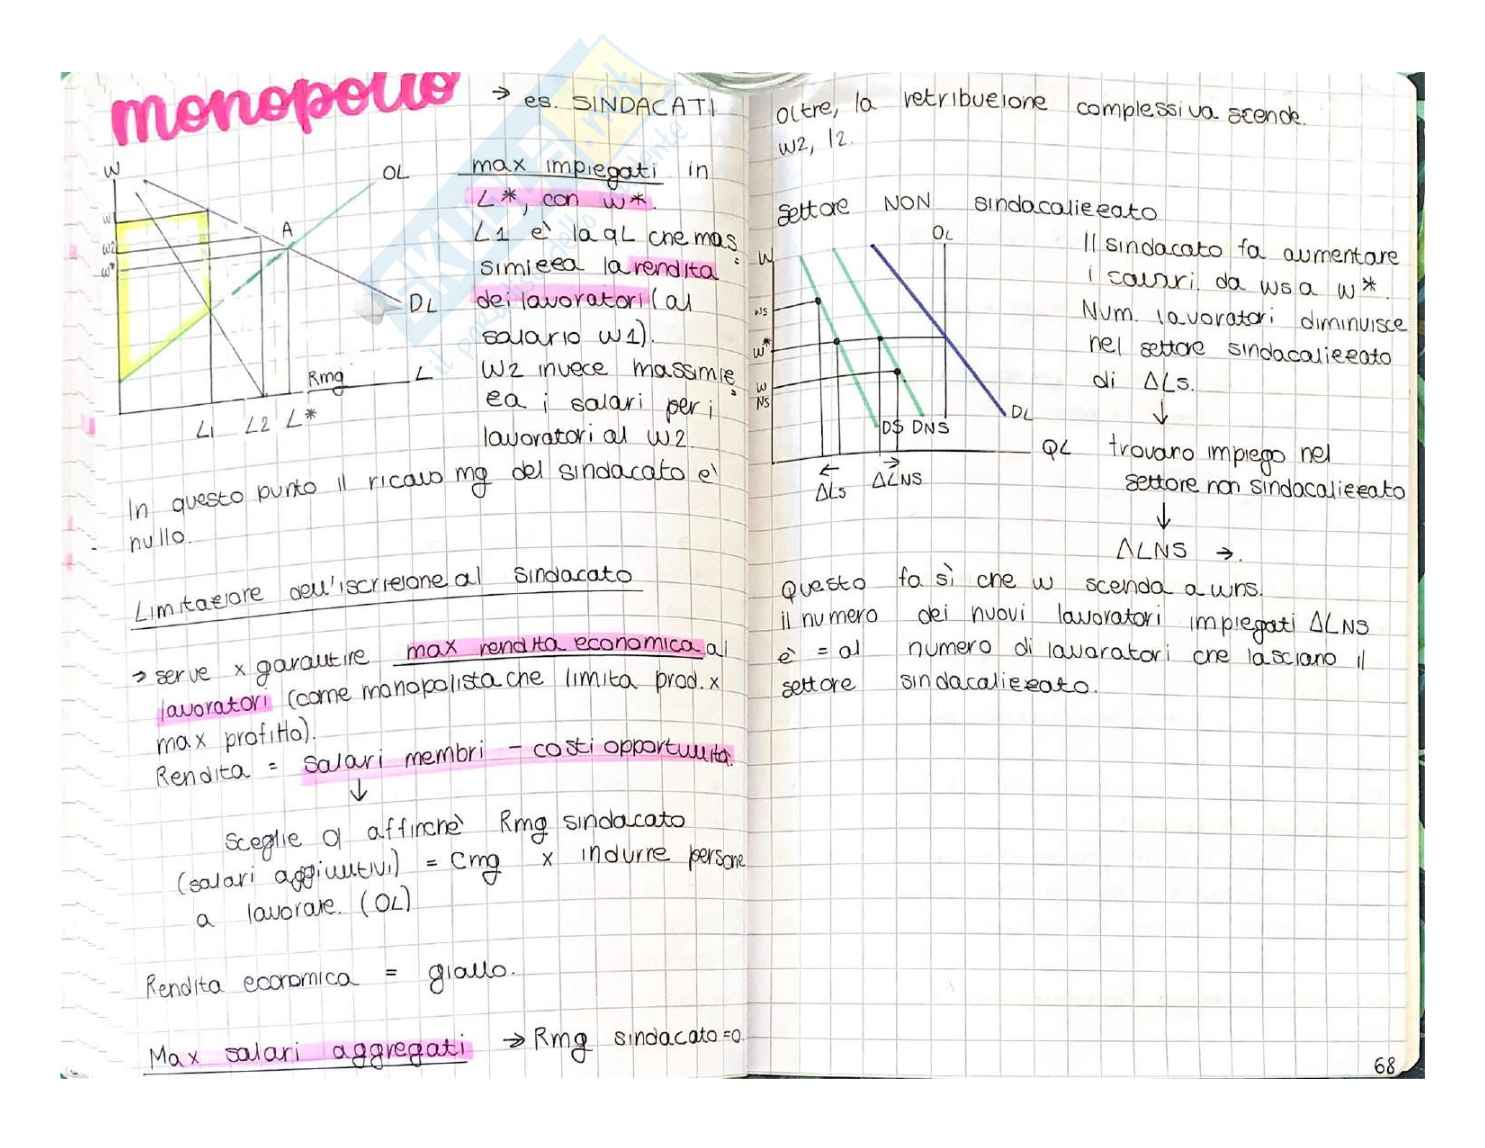 monopolio
→ es. SINDACATI
W
OL
w1
w2
w*
A
DL
Rmg
L
L1 L2 L*
max impiegati in
L*, con w*.
L1 è la qL che mas
simizza la rendita
dei lavoratori (al
salario w1).
W2 invece massimiz
za i salari per i
lavoratori al w2
In questo punto il ricavo mg del sindacato è
nullo.
Limitazione dell'iscrizione al sindacato
→ serve x garantire max rendita economica al
lavoratori (come monopolista che limita prod. x
max profitto).
Rendita = salari membri - costi opportunità.
↓
Sceglie q affinché Rmg sindacato
(salari aggiuntivi) = Cmg x indurre persone
a lavorare. (OL)
Rendita economica = giallo.
Max salari aggregati → Rmg sindacato =0.
oltre, la retribuzione complessiva scende.
w2, l2.
Settore NON sindacalizzato
W
OL
ws
w*
w
NS
DS DNS
DL
QL
←
ΔLs
→
ΔLNS
Il sindacato fa aumentare
i salari da ws a w*.
Num. lavoratori diminuisce
nel settore sindacalizzato
di ΔLs.
↓
trovano impiego nel
settore non sindacalizzato
↓
ΔLNS →.
Questo fa sì che w scenda a wns.
il numero dei nuovi lavoratori impiegati ΔLNS
è = al numero di lavoratori che lasciano il
settore sindacalizzato.
68
SKUOLA.net